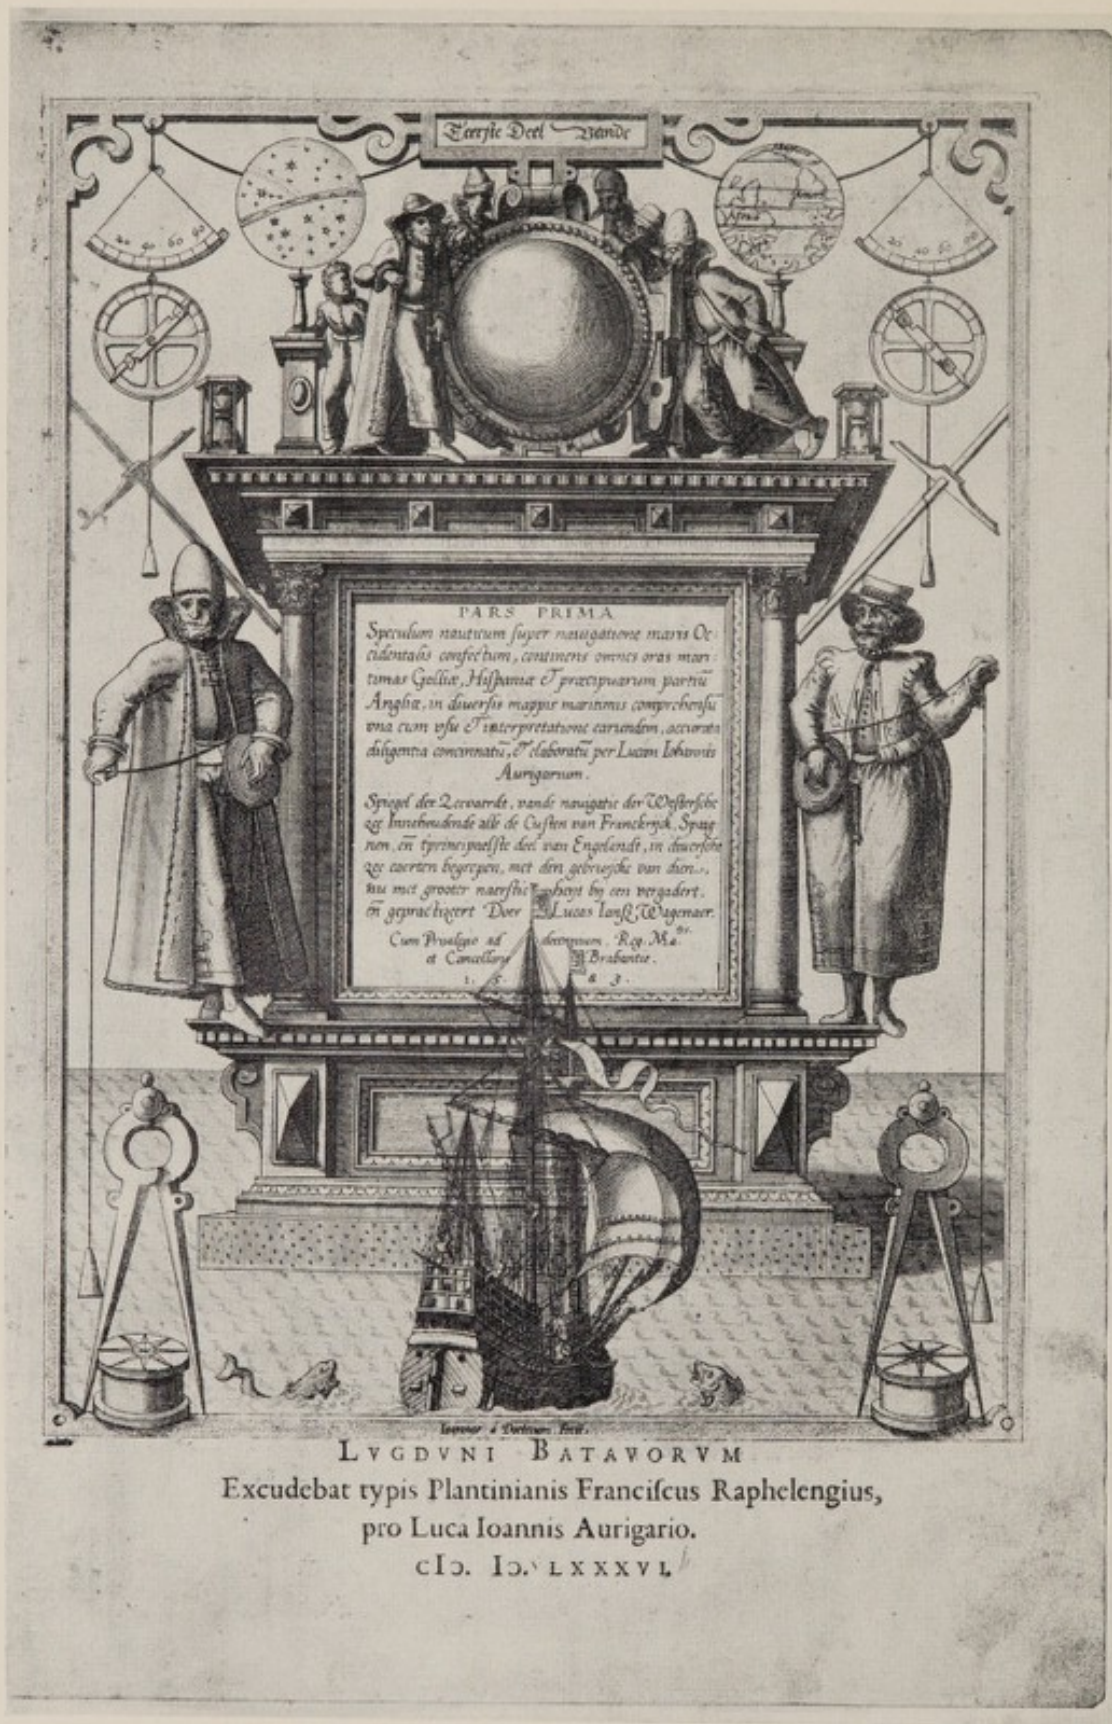 Teerste Deel Vande
20 40 60 90
20 40 60 90
PARS PRIMA
Speculum nauticum super nauigatione maris Oc:
cidentalis confectum, continens omnes oras mari:
timas Galliæ, Hispaniæ & præcipuarum partiū
Angliæ, in diuersis mappis maritimis comprehensū
vna cum vsu & interpretatione earundem, accurata
diligentia concinnatū, & elaboratū per Lucam Iohannis
Aurigarium.
Spiegel der Zeevaerdt, vande nauigatie der Westersche
zee Innehoudende alle de Custen van Franckrijck, Spaig
nen, en̄ tprincipaelste deel van Engelandt, in diuersche
zee caerten begrepen, met den gebruijcke van dien.,
nu met grooter naersticheyt bij een vergadert,
en̄ gepractizeert Doer Lucas Iansz Wagenaer.
Cum Priuilegio ad decennium. Reg. Ma.tis.
et Cancellarie Brabantie.
1. 5. 8 3.
Ioannes à Doetecum. Fecit.
LVGDVNI BATAVORVM
Excudebat typis Plantinianis Franciſcus Raphelengius,
pro Luca Ioannis Aurigario.
cIↃ. IↃ. LXXXVI.